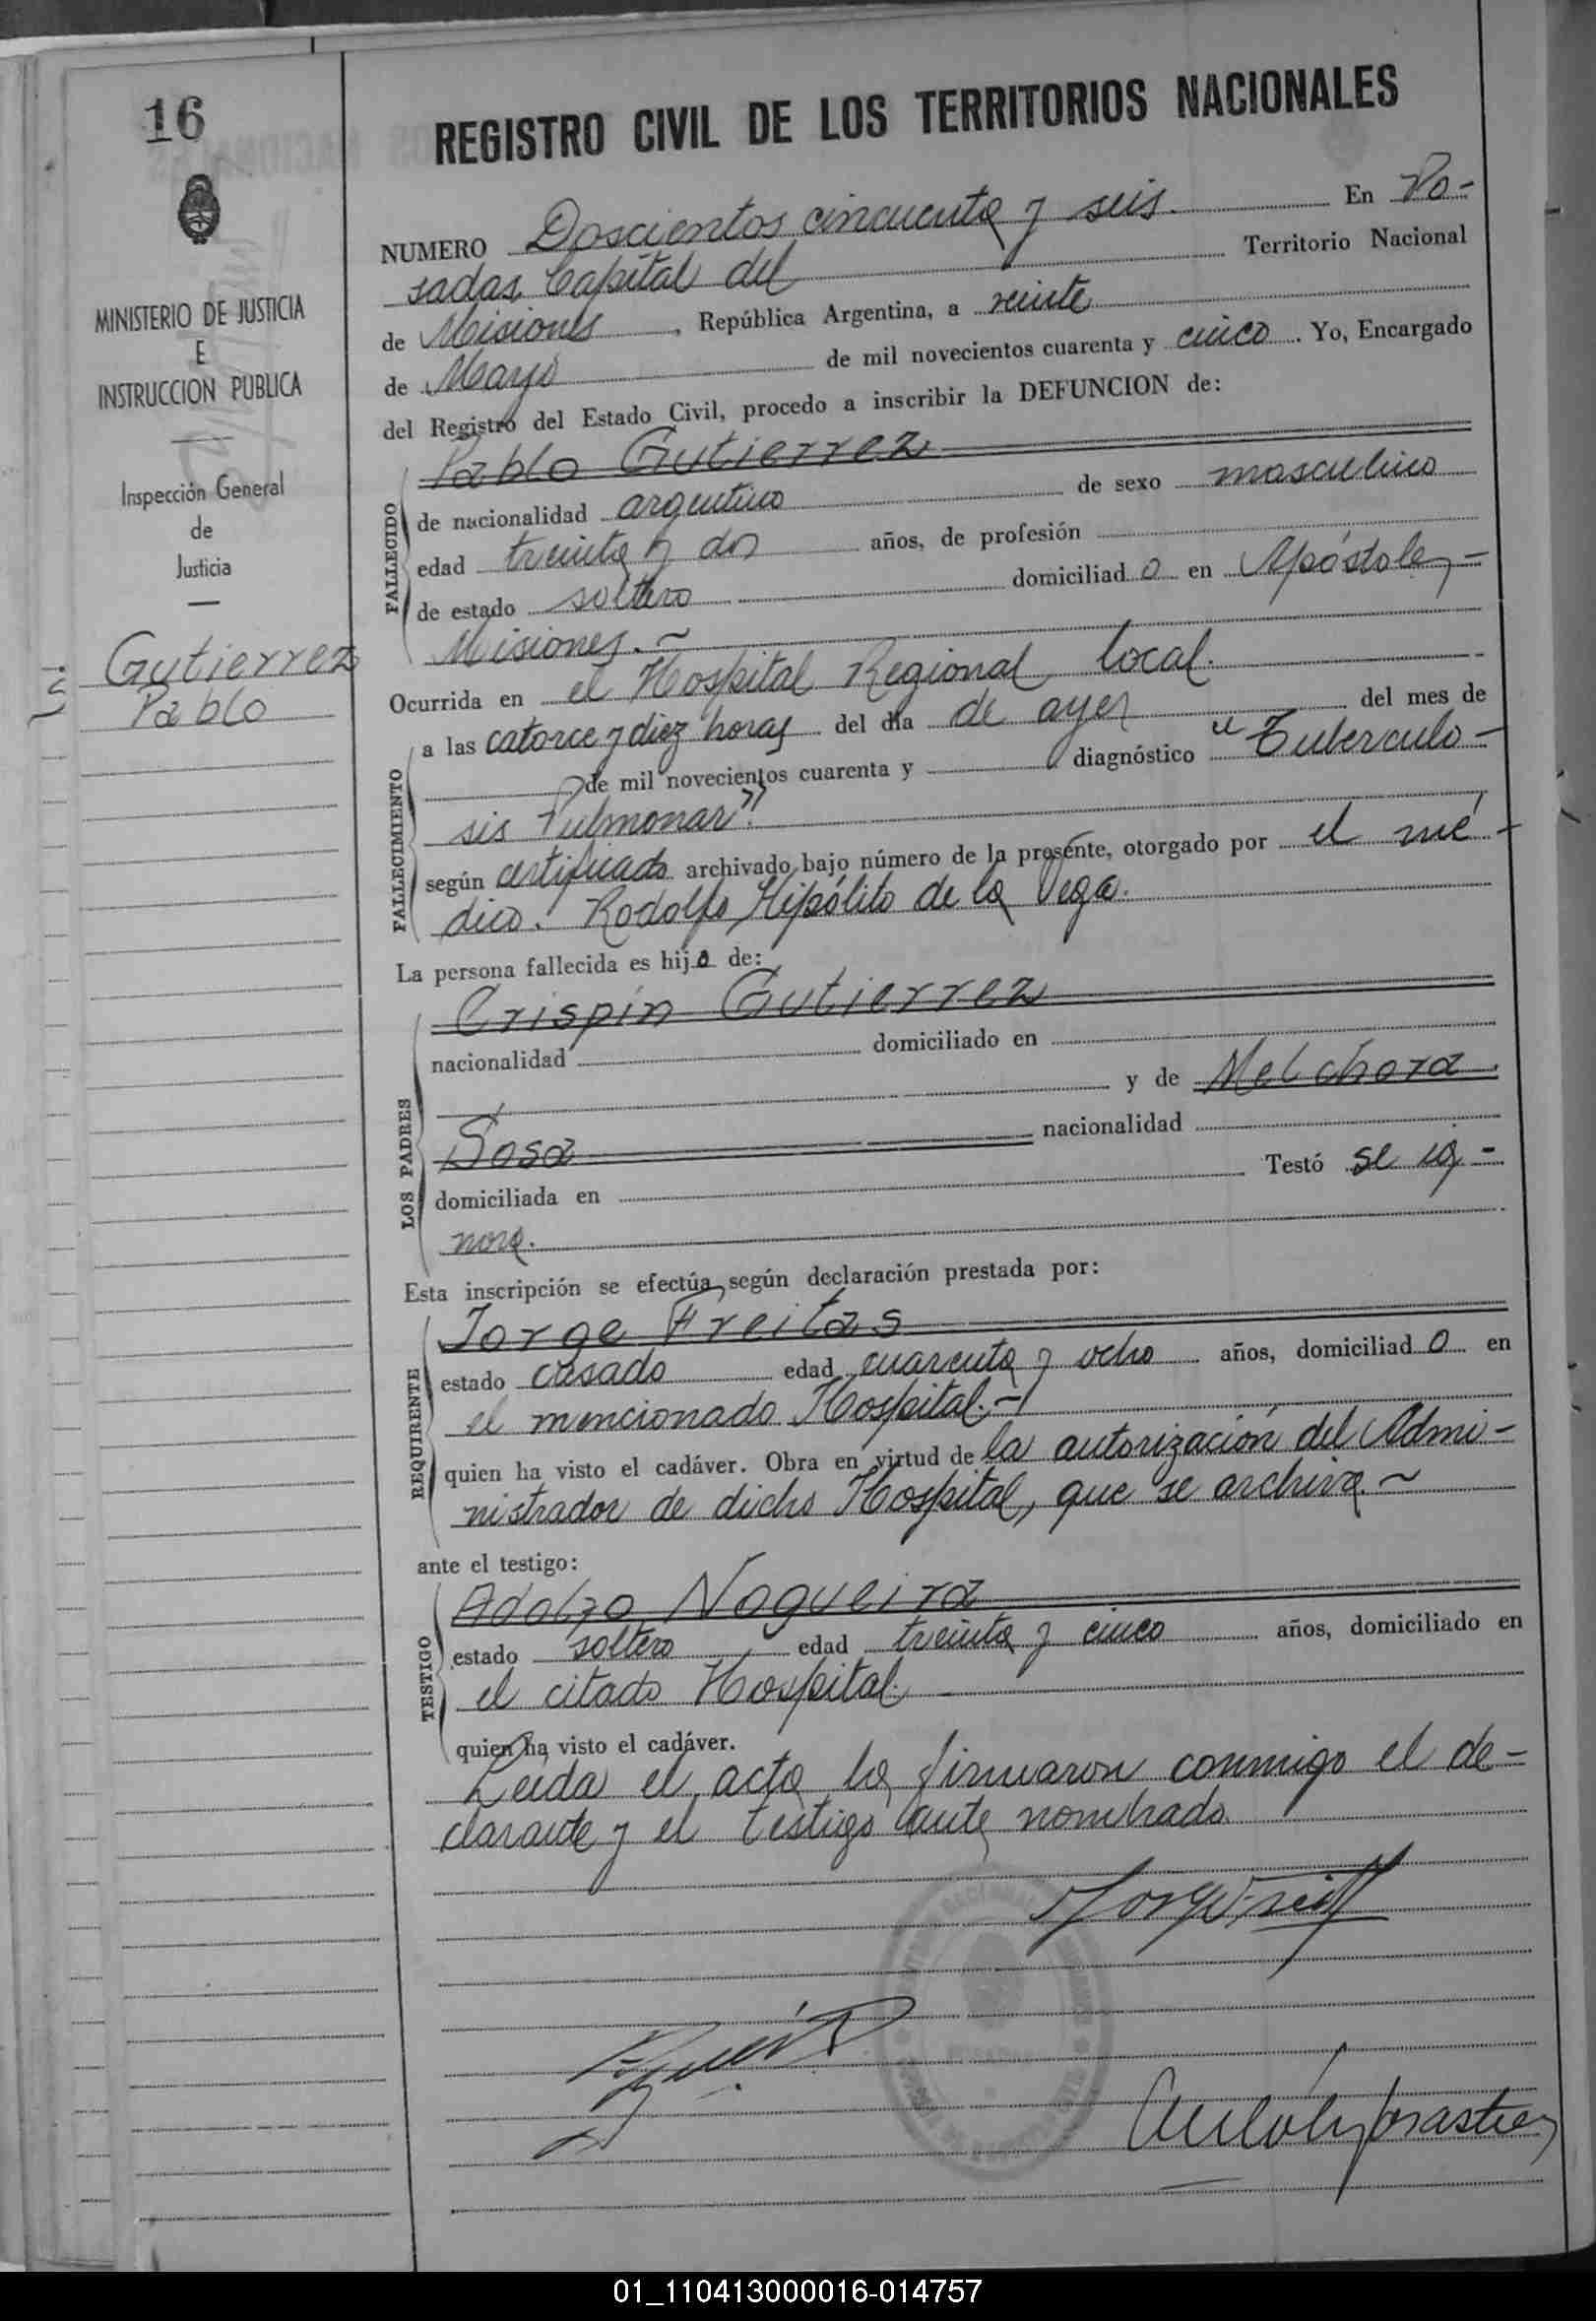 16
MINISTERIO DE JUSTICIA
E
INSTRUCCION PUBLICA
Inspección General
de
Justicia
Gutierrez
Pablo
REGISTRO CIVIL DE LOS TERRITORIOS NACIONALES
NUMERO Doscientos cincuenta y seis. En Po-
sadas Capital del Territorio Nacional
de Misiones, República Argentina, a veinte
de Mayo de mil novecientos cuarenta y cinco. Yo, Encargado
del Registro del Estado Civil, procedo a inscribir la DEFUNCION de:
FALLECIDO
Pablo Gutierrez
de nacionalidad argentino de sexo masculino
edad treinta y dos años, de profesión
de estado soltero domiciliado en Apóstoles-
Misiones.~
Ocurrida en el Hospital Regional local.
FALLECIMIENTO
a las catorce y diez horas del día de ayer del mes de
de mil novecientos cuarenta y diagnóstico "Tuberculo-
sis Pulmonar".
según certificado archivado bajo número de la presente, otorgado por el mé-
dico: Rodolfo Hipólito de la Vega.
La persona fallecida es hijo de:
LOS PADRES
Crispín Gutierrez
nacionalidad domiciliado en
y de Melchora
Sosa nacionalidad
domiciliada en Testó se ig-
nora.
Esta inscripción se efectúa según declaración prestada por:
REQUIRENTE
Jorge Freitas
estado casado edad cuarenta y ocho años, domiciliado en
el mencionado Hospital.-
quien ha visto el cadáver. Obra en virtud de la autorización del Admi-
nistrador de dicho Hospital, que se archiva.~
ante el testigo:
TESTIGO
Adolfo Nogueira
estado soltero edad treinta y cinco años, domiciliado en
el citado Hospital.
quien ha visto el cadáver.
Leída el acta la firmaron conmigo el de-
clarante y el testigo ante nombrado
01_110413000016-014757